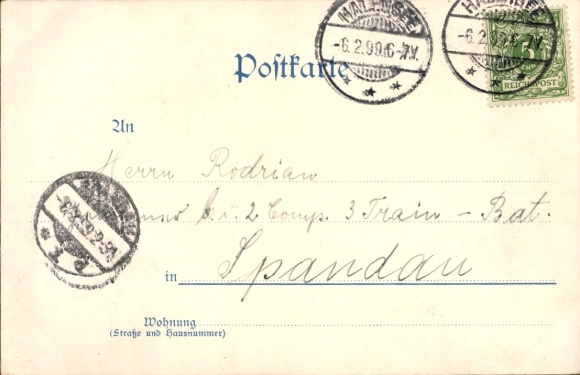 HALENSEE
-6.2.99.6-7V.
* * *
HALENSEE
-6.2.99.6-7V.
* * *
5
REICHSPOST
Postkarte
An
Herrn Rodrian
b. d. 2 Comp. 3 Train - Bat.
in Spandau
Wohnung
(Straße und Hausnummer)